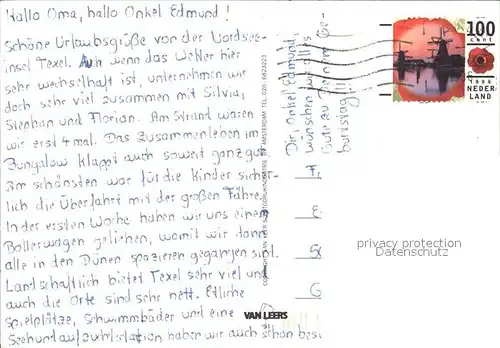 Hallo Oma, hallo Onkel Edmund!
Schöne Urlaubsgrüße von der Nordsee-
insel Texel. Auch wenn das Wetter hier
sehr wechselhaft ist, unternehmen wir
doch sehr viel zusammen mit Silvia,
Stephan und Florian. Am Strand waren
wir erst 4 mal. Das Zusammenleben im
Bungalow klappt auch soweit ganz gut.
Am schönsten war für die Kinder sicher-
lich die Überfahrt mit der großen Fähre.
In der ersten Woche haben wir uns einen
Bollerwagen geliehen, womit wir dann
alle in den Dünen spazieren gegangen sind.
Landschaftlich bietet Texel sehr viel und
auch die Orte sind sehr nett. Etliche
Spielplätze, Schwimmbäder und eine
Seehundaufzuchtstation haben wir auch schon besi
Dir, Onkel Edmund,
wünschen wir alles
Gute zu Deinem Ge-
burtstag!!!
AMSTERDAM TEL. 020-6820223
VAN LEERS
100
cent
1996
NEDER
LAND
F
E
G
privacy protection
Datenschutz